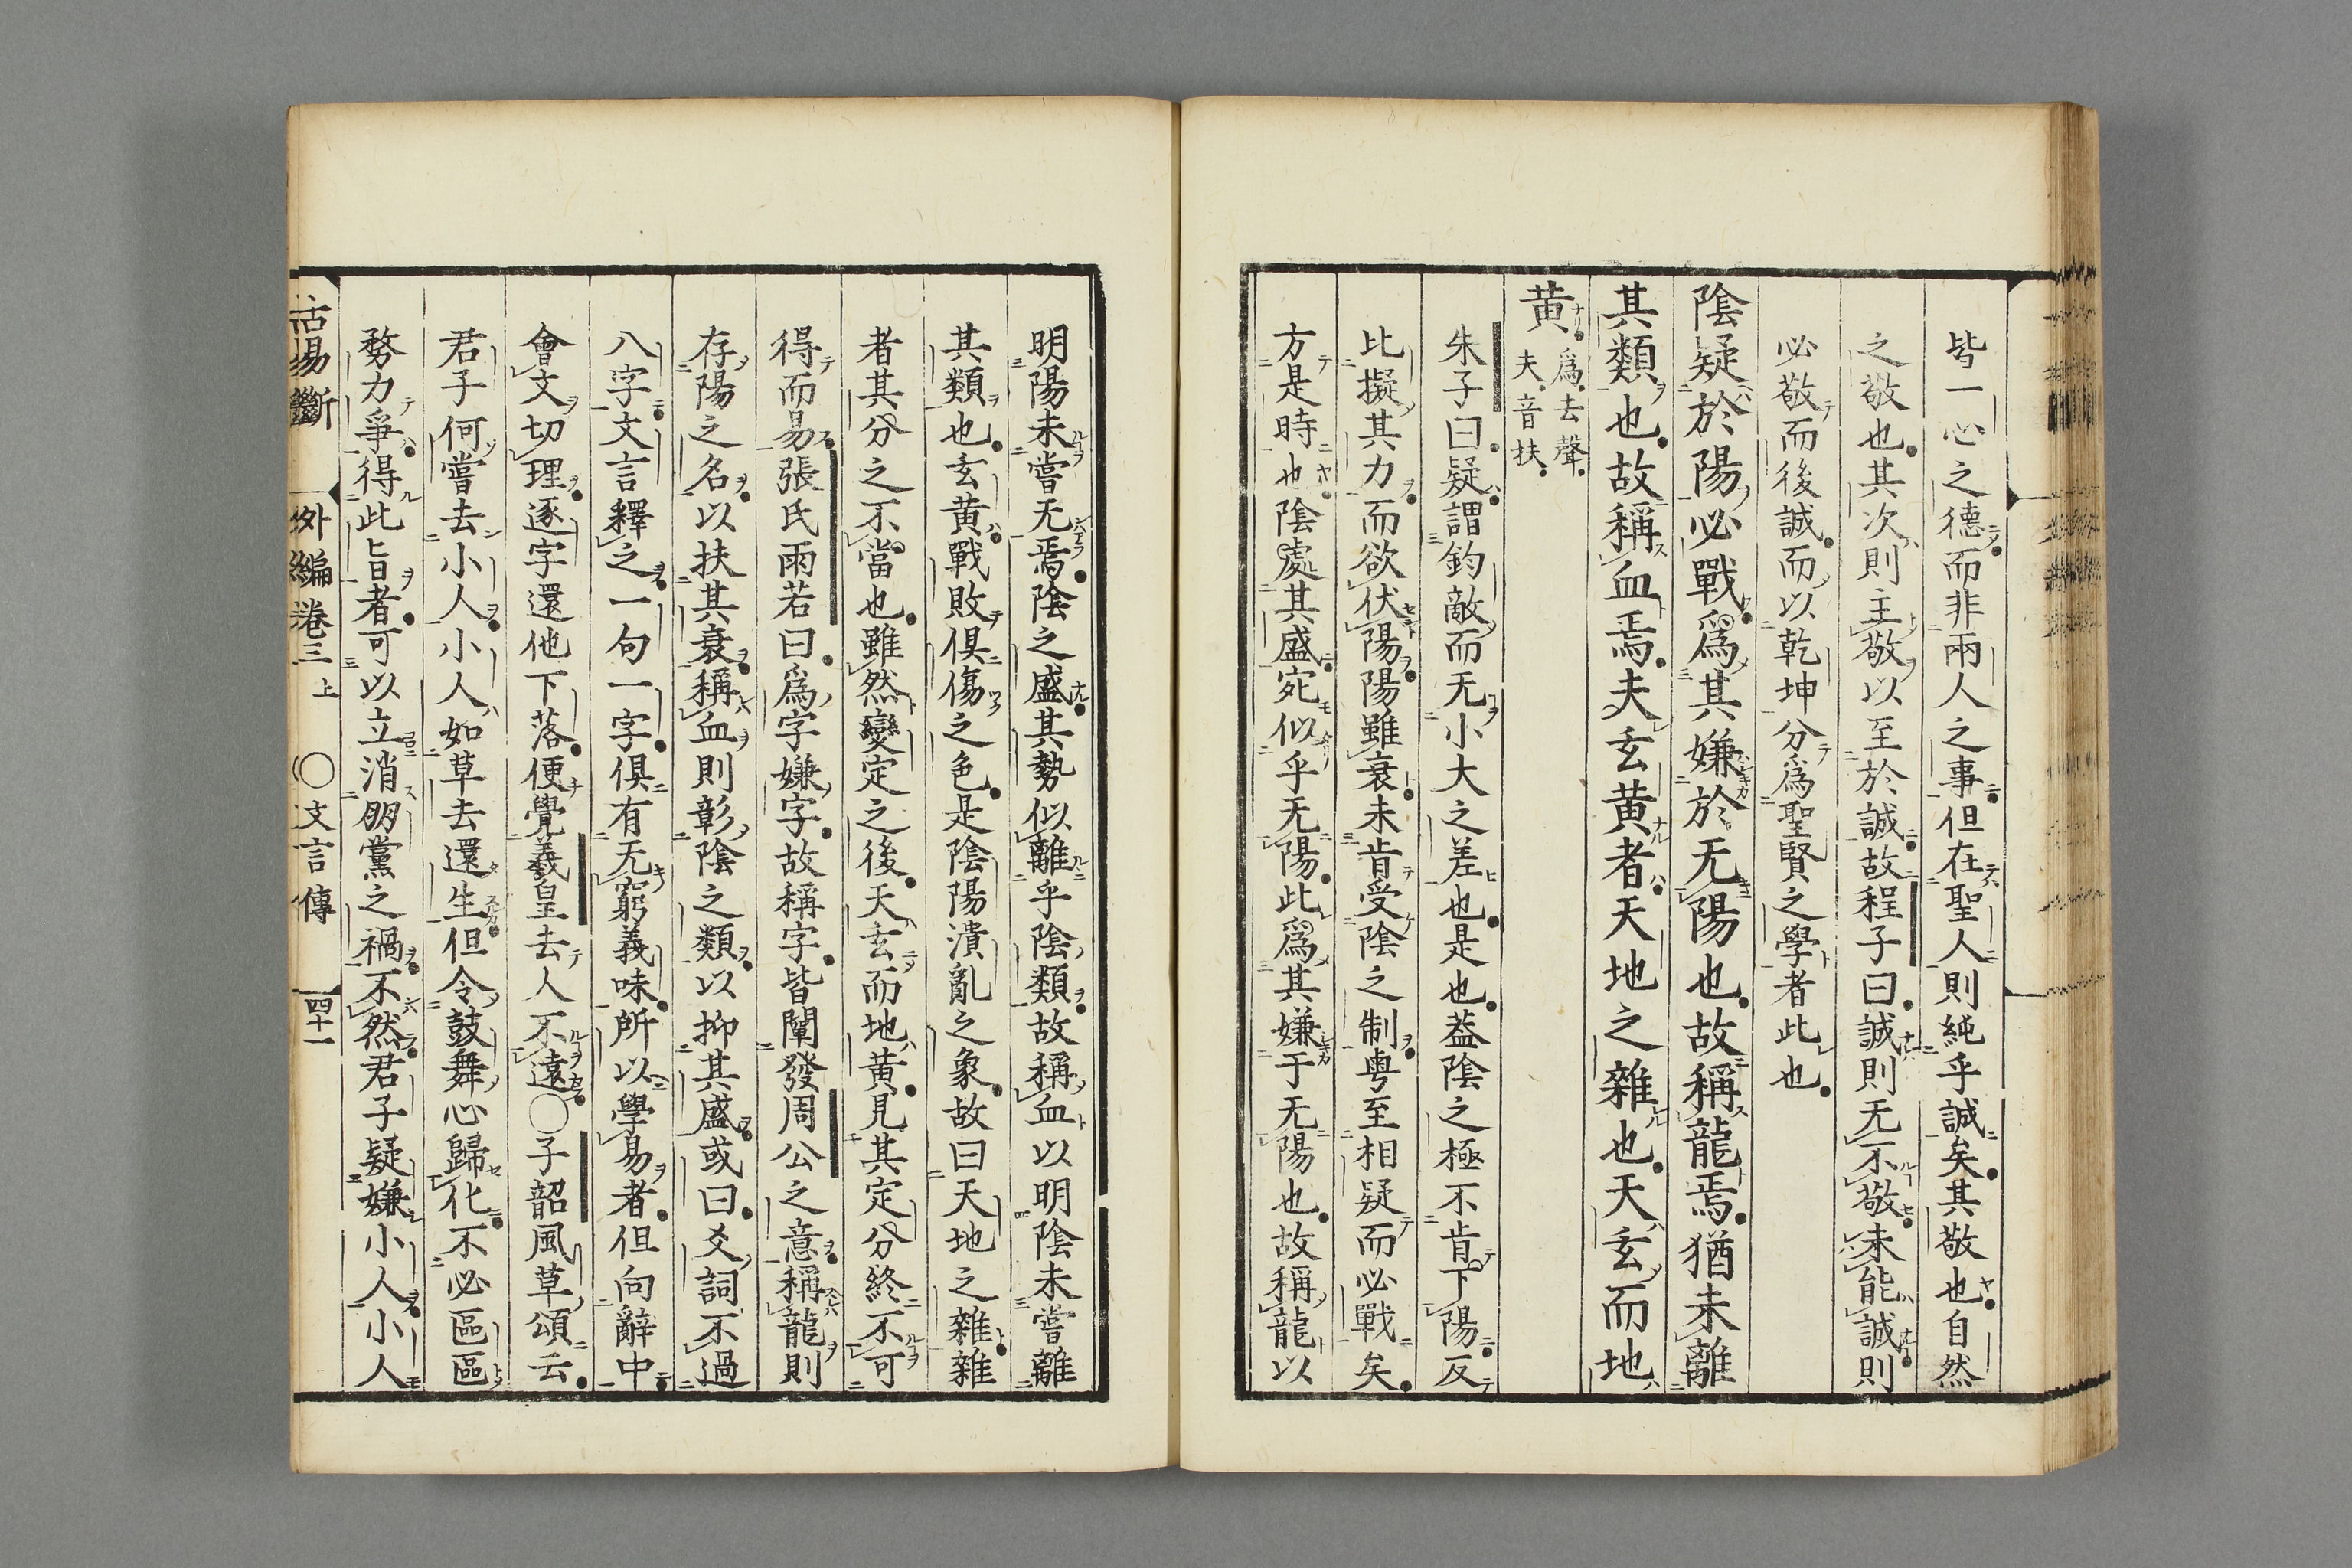 皆一心之德而非兩人之事但在聖人則純乎誠矣其敬也自然
之敬也其次則主敬以至於誠故程子曰誠則无不敬未能誠則
必敬而後誠而以乾坤分爲聖賢之學者此也
陰疑於陽必戰爲其嫌於无陽也故稱龍焉猶未離
其類也故稱血焉夫玄黄者天地之雜也天玄而地
黄爲去聲
夫音扶
朱子曰疑謂鈞敵而无小大之差也是也葢陰之極不肯下陽反
比擬其力而欲伏陽陽雖衰未肯受陰之制粤至相疑而必戰矣
方是時也陰處其盛宛似乎无陽此爲其嫌于无陽也故稱龍以
明陽未嘗无焉陰之盛其勢似離乎陰類故稱血以明陰未嘗離
其類也玄黄戰敗俱傷之色是陰陽潰亂之象故曰天地之雜雜
者其分之不當也雖然變定之後天玄而地黄見其定分終不可
得而易張氏雨若曰爲字嫌字故稱字皆闡發周公之意稱龍則
存陽之名以扶其衰稱血則彰陰之類以抑其盛或曰爻詞不過
八字文言釋之一句一字俱有无窮義味所以學易者但向辭中
會文切理逐字還他下落便覺羲皇去人不遠○子韶風草頌云
君子何嘗去小人小人如草去還生但令鼓舞心歸化不必區區
務力爭得此旨者可以立消朋黨之禍不然君子疑嫌小人小人
古易斷 外編卷三上 ○文言傳 四十一